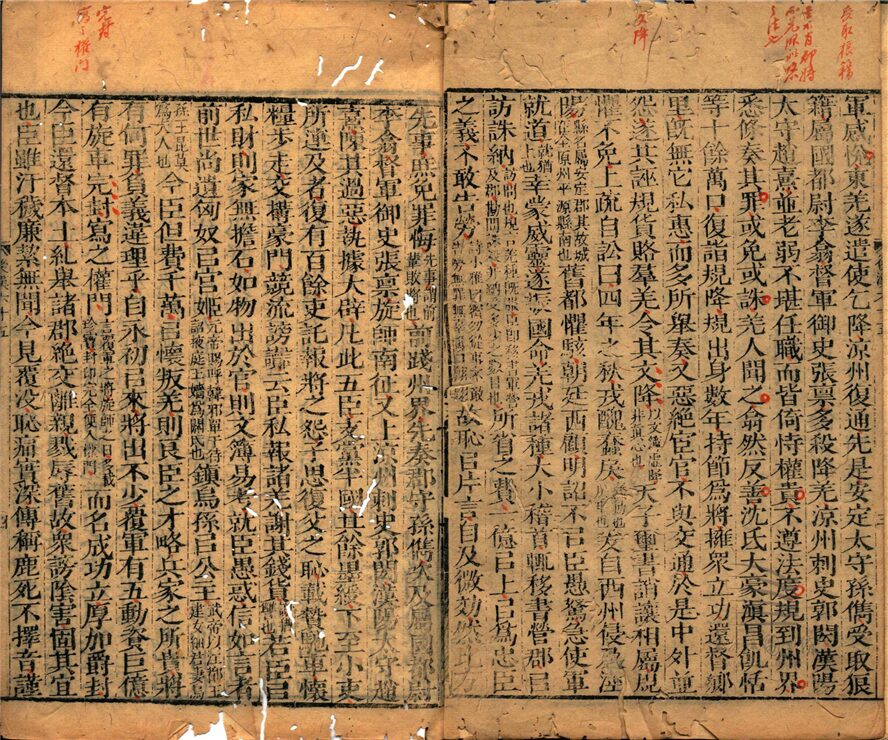 軍威恱東羌遂遣使乞降涼州復通先是安定太守孫儁受取狼
籍屬國都尉李翕督軍御史張稟多殺降羌涼州刺史郭閎漢陽
太守趙熹並老弱不堪任職而皆倚恃權貴不遵法度規到州界
悉條奏其罪或免或誅羌人聞之翕然反善沈氐大豪滇昌飢恬
等十餘萬口復詣規降規出身數年持節為將擁眾立功還督鄉
里既無它私惠而多所舉奏又惡絕宦官不與交通於是中外並
怨遂其誣規貨賂羣羌令其文降以文簿虛降非真心也天子璽書誚讓相屬規
懼不免上疏自訟曰四年之秋戎醜蠢戾爰自西州侵及涇
陽縣名屬安定郡其故城在今原州平源縣南也舊都懼駭朝廷西顧明詔不㠯臣愚駑急使軍
就道幸蒙威靈遂振國命羌戎諸種大小稽首輒移書營郡㠯
訪誅納所省之費一億㠯上㠯為忠臣
之義不敢告勞故恥㠯片言自及微効然比方
先事庶免罪悔先事謂前輩敗將也前踐州界先奏郡守孫儁次及屬國都尉
李翕督軍御史張稟旋師南征又上涼州刺史郭閎漢陽太守趙
熹陳其過惡執據大辟凡此五臣支黨半國其餘墨綬下至小吏
所連及者復有百餘吏託報將之怨子思復父之恥載贄馳車懷
糧步走交搆豪門競流謗讟云臣私報諸羌謝其錢貨若臣㠯
私財則家無擔石如物出於官則文簿易考就臣愚惑信如言者
前世尚遺匈奴㠯宮姬元帝賜呼韓邪單于待詔掖庭王嬙為閼氏也鎮烏孫㠯公主武帝以江都王建女細君妻烏
孫王昆莫為夫人也今臣但費千萬㠯懷叛羌則良臣之才略兵家之所貴將
有何罪負義違理乎自永初㠯來將出不少覆軍有五動資巨億
有旋車完封寫之權門言覆軍之將旋師之日多載珍寶封印完全便入權門而名成功立厚加爵封
今臣還督本土糾舉諸郡絕交離親戮辱舊故眾謗陰害固其宜
也臣雖汙穢廉絜無聞今見覆沒恥痛實深傳稱鹿死不擇音謹